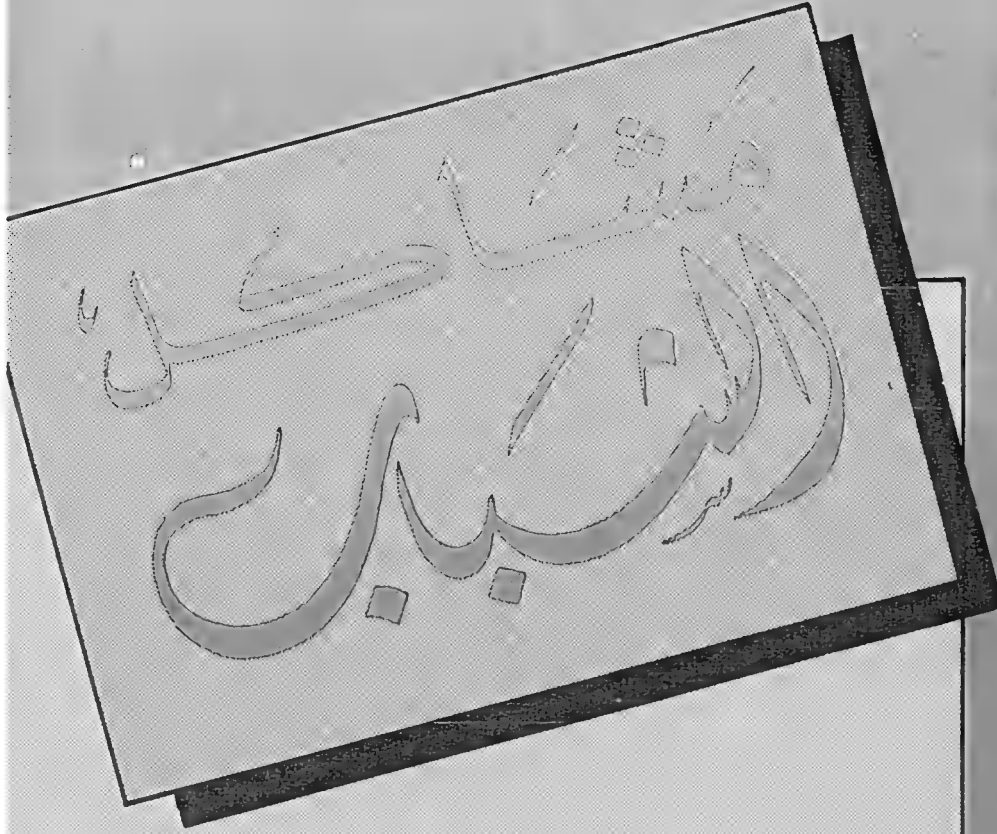 مشاكل
الشباب